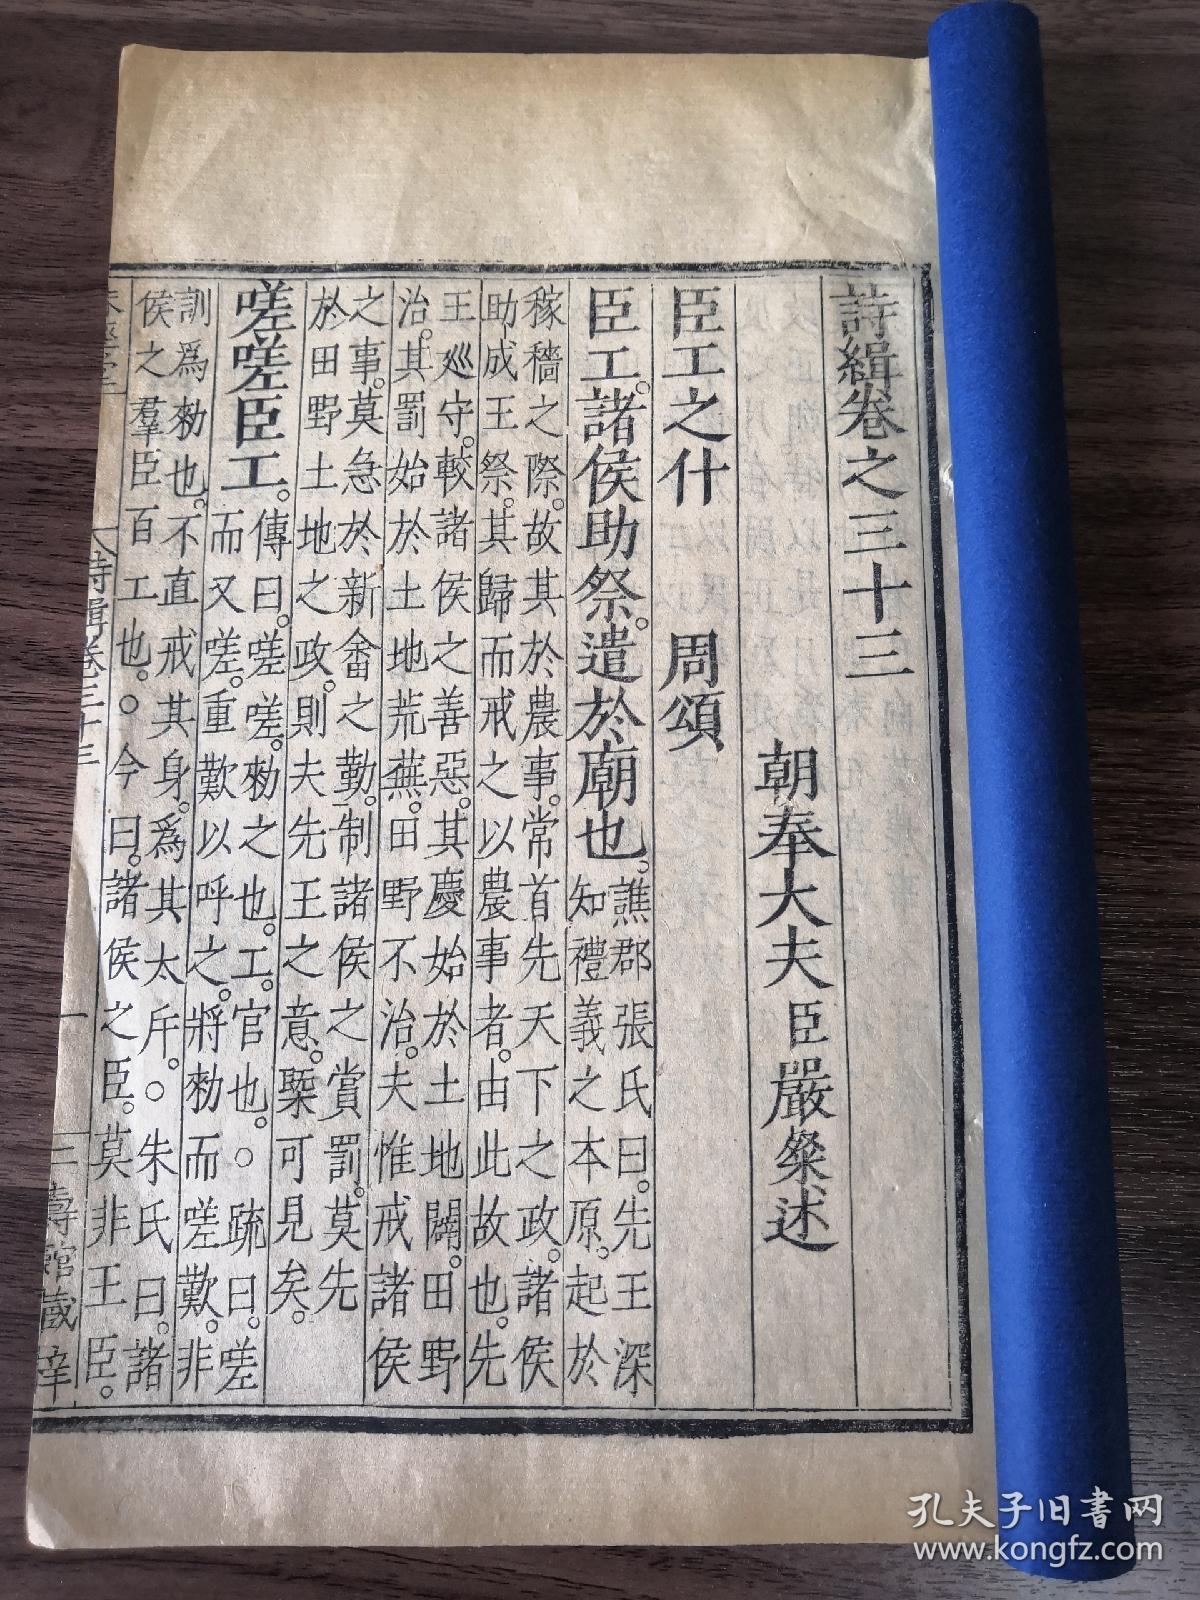 詩緝卷之三十三
朝奉大夫臣嚴粲述
臣工之什　周頌
臣工。諸侯助祭。遣於廟也。
譙郡張氏曰。先王深
知禮義之本原。起於
稼穡之際。故其於農事。常首先天下之政。諸侯
助成王祭。其歸而戒之以農事者。由此故也。先
王廵守。較諸侯之善惡。其慶始於土地闢。田野
治。其罰始於土地荒蕪。田野不治。夫惟戒諸侯
之事。莫急於新畬之勤。制諸侯之賞罰。莫先
於田野土地之政。則夫先王之意。槩可見矣。
嗟嗟臣工。
傳曰。嗟嗟。勑之也。工。官也。○疏曰。嗟
而又嗟。重歎以呼之。將勑而嗟歎。非
訓爲勑也。不直戒其身。爲其太斥。○朱氏曰。諸
侯之羣臣百工也。○今曰。諸侯之臣。莫非王臣。
詩緝卷三十三　一
壽館蔵梓
孔夫子旧书网
www.kongfz.com